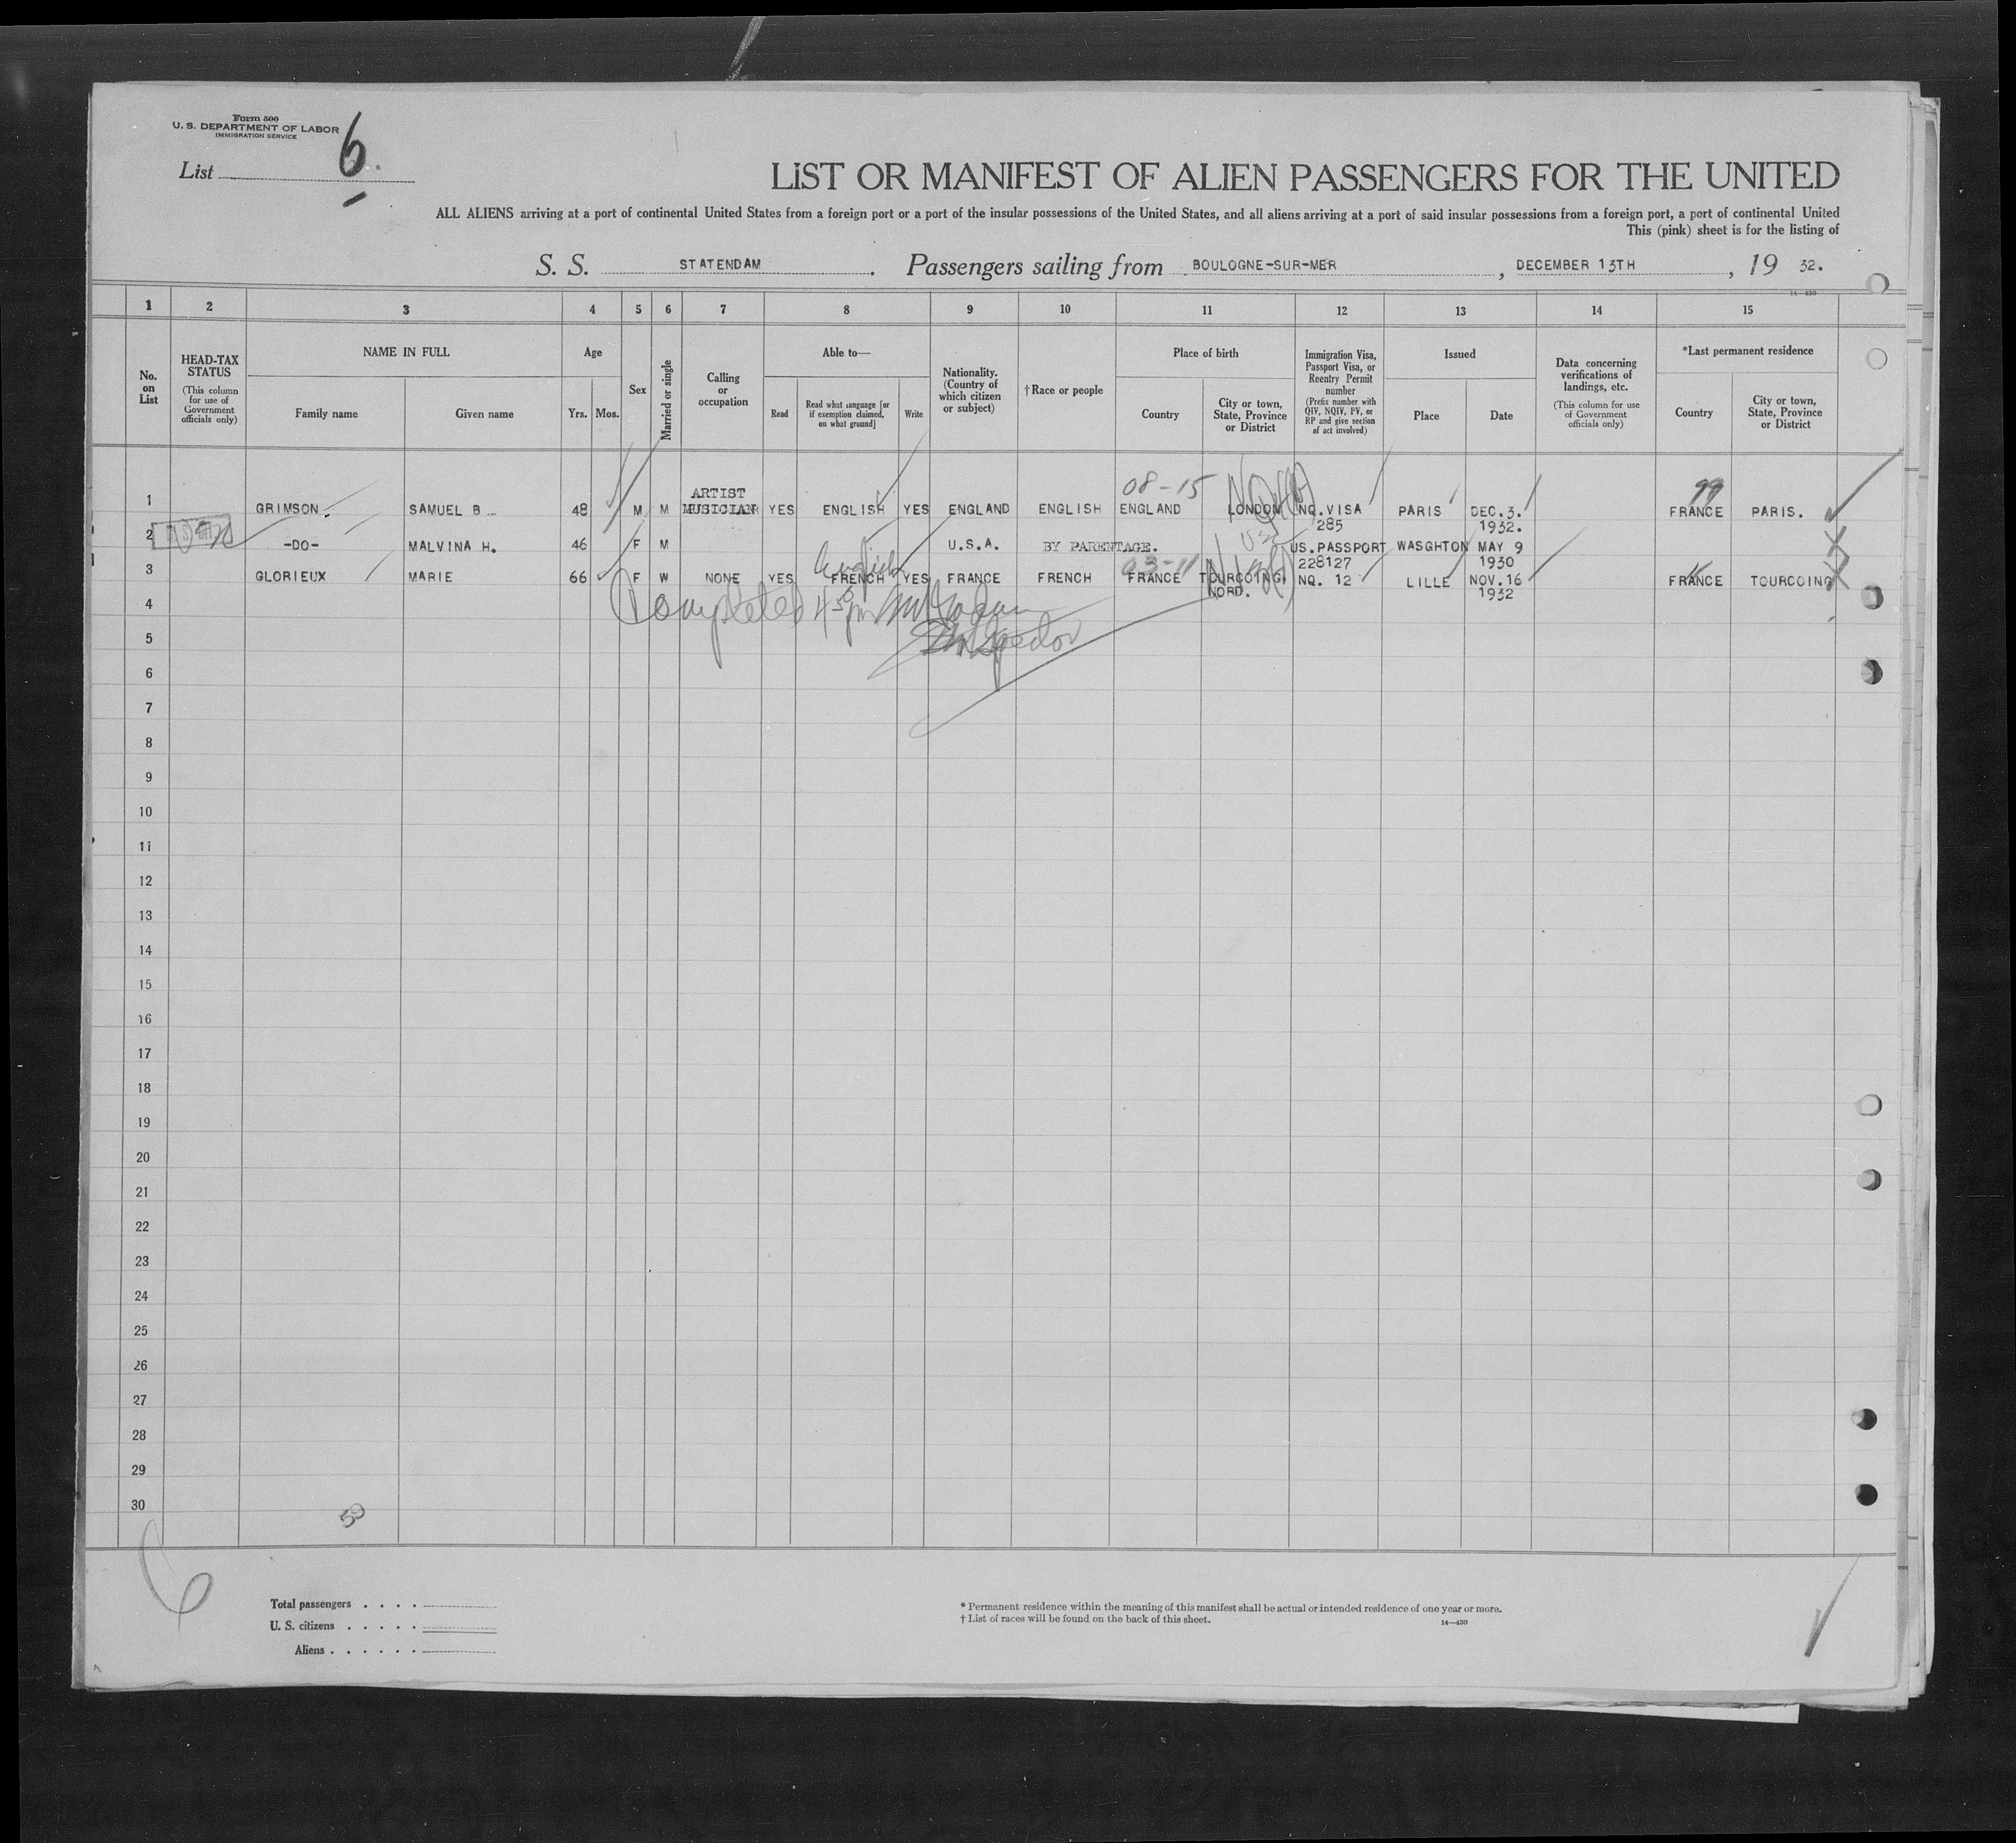 Form 500
U. S. DEPARTMENT OF LABOR
IMMIGRATION SERVICE
List 6.
LIST OR MANIFEST OF ALIEN PASSENGERS FOR THE UNITED
ALL ALIENS arriving at a port of continental United States from a foreign port or a port of the insular possessions of the United States, and all aliens arriving at a port of said insular possessions from a foreign port, a port of continental United
This (pink) sheet is for the listing of
S. S. STATENDAM. Passengers sailing from BOULOGNE-SUR-MER, DECEMBER 13TH, 19 32.
14—430
1 2 3 4 5 6 7 8 9 10 11 12 13 14 15
No. on List
HEAD-TAX STATUS (This column for use of Government officials only)
NAME IN FULL
Family name
Given name
Age
Yrs.
Mos.
Sex
Married or single
Calling or occupation
Able to—
Read
Read what language [or if exemption claimed, on what ground]
Write
Nationality. (Country of which citizen or subject)
†Race or people
Place of birth
Country
City or town, State, Province or District
Immigration Visa, Passport Visa, or Reentry Permit number (Prefix number with QIV, NQIV, PV, or RP and give section of act involved)
Issued
Place
Date
Data concerning verifications of landings, etc. (This column for use of Government officials only)
*Last permanent residence
Country
City or town, State, Province or District
08-15
99
1 GRIMSON. SAMUEL B 48 M M ARTIST MUSICIAN YES ENGLISH YES ENGLAND ENGLISH ENGLAND LONDON NQ.VISA 285 PARIS DEC.3. 1932. FRANCE PARIS.
2 -DO- MALVINA H. 46 F M U.S.A. BY PARENTAGE. US.PASSPORT 228127 WASGHTON MAY 9 1930
English
03-11
3 GLORIEUX MARIE 66 F W NONE YES FRENCH YES FRANCE FRENCH FRANCE TOURCOING. NORD. NQ. 12 LILLE NOV.16 1932 FRANCE TOURCOING
Completed
Inspector
4
5
6
7
8
9
10
11
12
13
14
15
16
17
18
19
20
21
22
23
24
25
26
27
28
29
30
6
Total passengers . . . .
U. S. citizens . . . . .
Aliens . . . . . .
* Permanent residence within the meaning of this manifest shall be actual or intended residence of one year or more.
† List of races will be found on the back of this sheet.
14—430